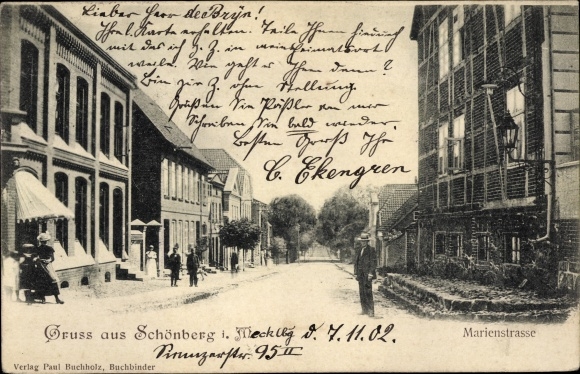 Lieber Herr de Bryn!
Ihre Karte erhalten. Teile Ihnen hierdurch
mit das ich z. Z. in meinem Heimatsort
weile. Wie geht es Ihnen denn?
Bin zur Z. ohne Stellung.
Grüßen Sie Rößler von mir
Schreiben Sie bald wieder.
Besten Gruß Ihr
C. Ekengren
Gruss aus Schönberg i. Mecklbg d. 7.11.02.
95 II
Marienstrasse
Verlag Paul Buchholz, Buchbinder